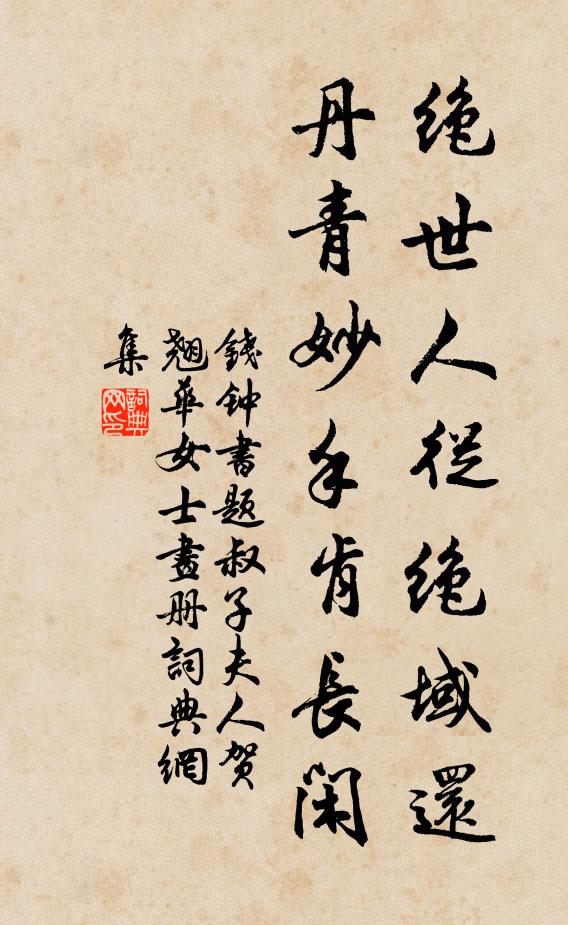 絶世人從絶域還
丹青妙手肯長閑
錢钟書题叔子夫人贺
翘華女士畫册詞典網
集
詞典
网印